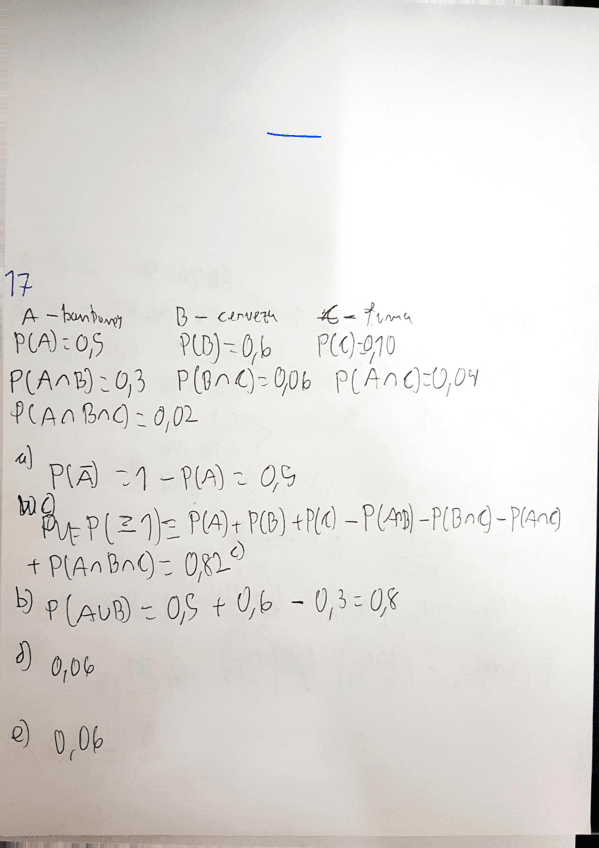 17
A - B - cerveza - fuma
P(A)=0,5 P(B)=0,6 P(C)=0,10
P(A∩B)=0,3 P(B∩C)=0,06 P(A∩C)=0,04
P(A∩B∩C)=0,02
a)
P(Ā) = 1 - P(A) = 0,5
c)
P(≥1)= P(A)+P(B)+P(C) - P(A∩B) - P(B∩C) - P(A∩C)
+ P(A∩B∩C)= 0,82 c)
b) P(A∪B) = 0,5 + 0,6 - 0,3 = 0,8
d) 0,06
e) 0,06